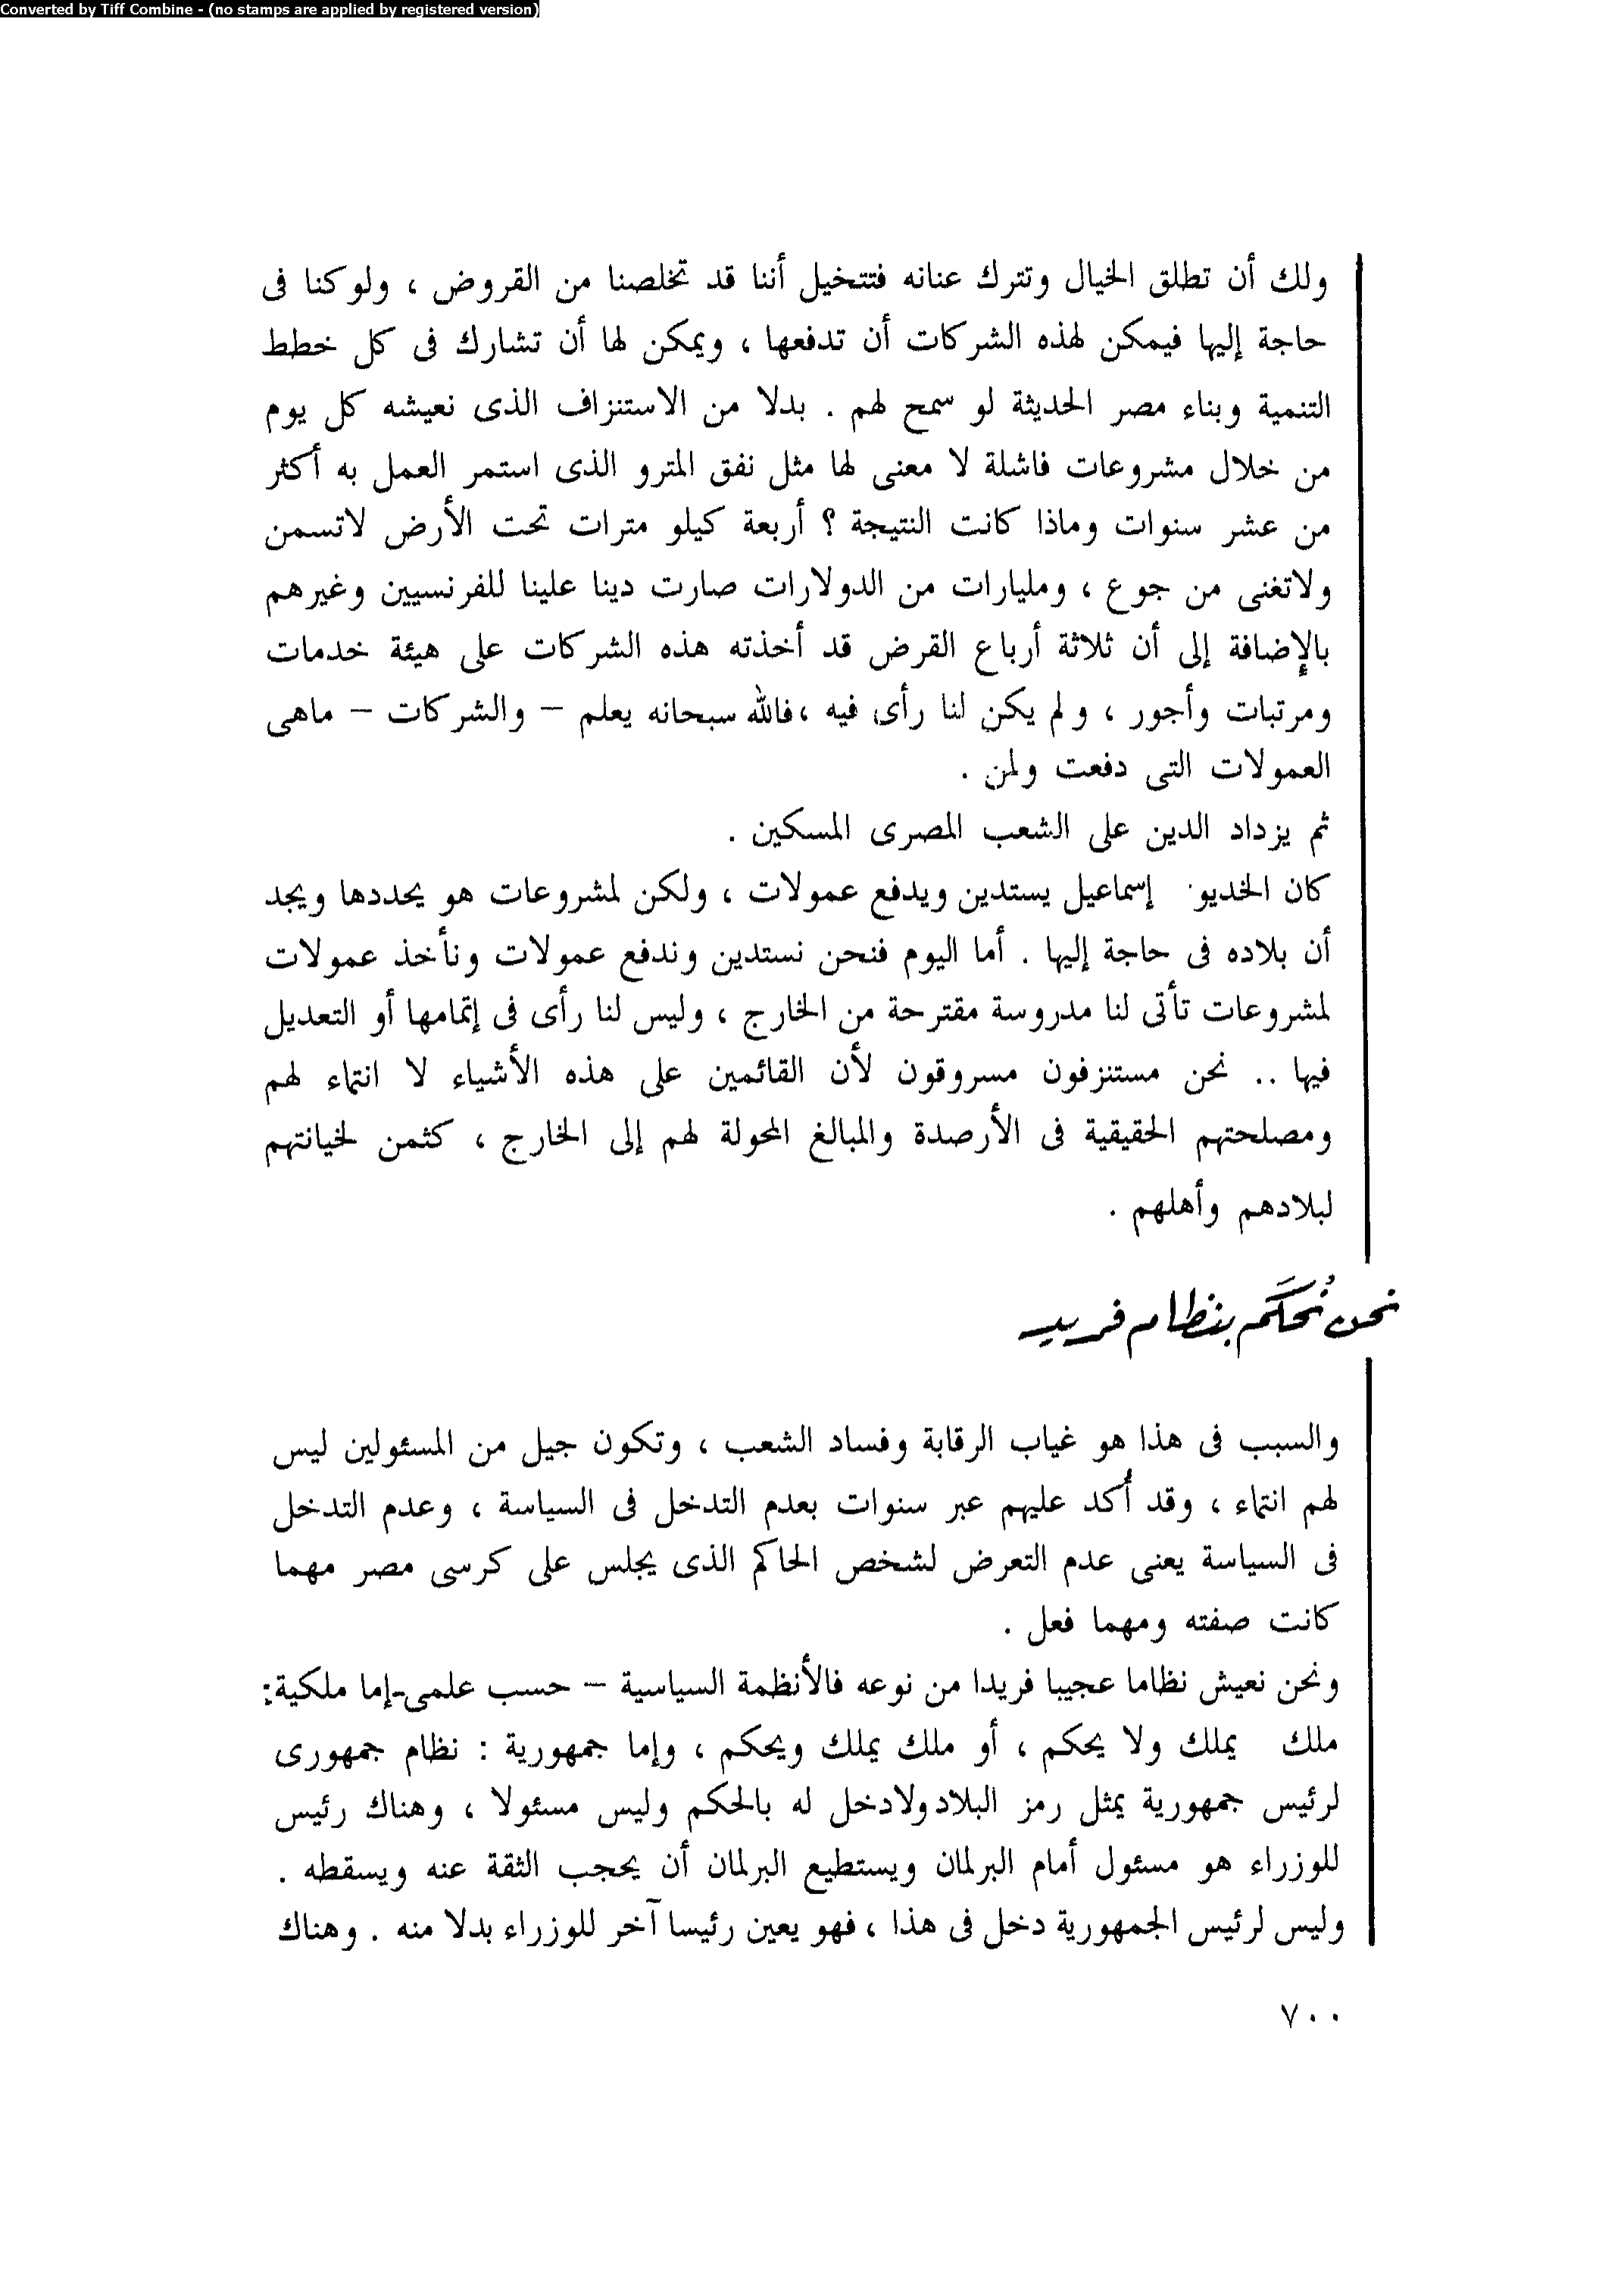 Converted by Tiff Combine - (no stamps are applied by registered version)
ولك أن تطلق الخيال وتترك عنانه فتتخيل أننا قد تخلصنا من القروض ، ولو كنا فى
حاجة إليها فيمكن لهذه الشركات أن تدفعها ، ويمكن لها أن تشارك فى كل خطط
التنمية وبناء مصر الحديثة لو سمح لهم . بدلا من الاستنزاف الذى نعيشه كل يوم
من خلال مشروعات فاشلة لا معنى لها مثل نفق المترو الذى استمر العمل به أكثر
من عشر سنوات وماذا كانت النتيجة ؟ أربعة كيلو مترات تحت الأرض لاتسمن
ولاتغنى من جوع ، ومليارات من الدولارات صارت دينا علينا للفرنسيين وغيرهم
بالإضافة إلى أن ثلاثة أرباع القرض قد أخذته هذه الشركات على هيئة خدمات
ومرتبات وأجور ، ولم يكن لنا رأى فيه ،فالله سبحانه يعلم – والشركات – ماهى
العمولات التى دفعت ولمن .
ثم يزداد الدين على الشعب المصرى المسكين .
كان الخديو إسماعيل يستدين ويدفع عمولات ، ولكن لمشروعات هو يحددها ويجد
أن بلاده فى حاجة إليها . أما اليوم فنحن نستدين وندفع عمولات ونأخذ عمولات
لمشروعات تأتى لنا مدروسة مقترحة من الخارج ، وليس لنا رأى فى إتمامها أو التعديل
فيها .. نحن مستنزفون مسروقون لأن القائمين على هذه الأشياء لا انتماء لهم
ومصلحتهم الحقيقية فى الأرصدة والمبالغ المحولة لهم إلى الخارج ، كثمن لخيانتهم
لبلادهم وأهلهم .
نحن نُحكَم بنظام فريد
والسبب فى هذا هو غياب الرقابة وفساد الشعب ، وتكون جيل من المسئولين ليس
لهم انتماء ، وقد أُكد عليهم عبر سنوات بعدم التدخل فى السياسة ، وعدم التدخل
فى السياسة يعنى عدم التعرض لشخص الحاكم الذى يجلس على كرسى مصر مهما
كانت صفته ومهما فعل .
ونحن نعيش نظاما عجيبا فريدا من نوعه فالأنظمة السياسية – حسب علمى-إما ملكية:
ملك يملك ولا يحكم ، أو ملك يملك ويحكم ، وإما جمهورية : نظام جمهورى
لرئيس جمهورية يمثل رمز البلاد ولادخل له بالحكم وليس مسئولا ، وهناك رئيس
للوزراء هو مسئول أمام البرلمان ويستطيع البرلمان أن يحجب الثقة عنه ويسقطه .
وليس لرئيس الجمهورية دخل فى هذا ، فهو يعين رئيسا آخر للوزراء بدلا منه . وهناك
٧٠٠